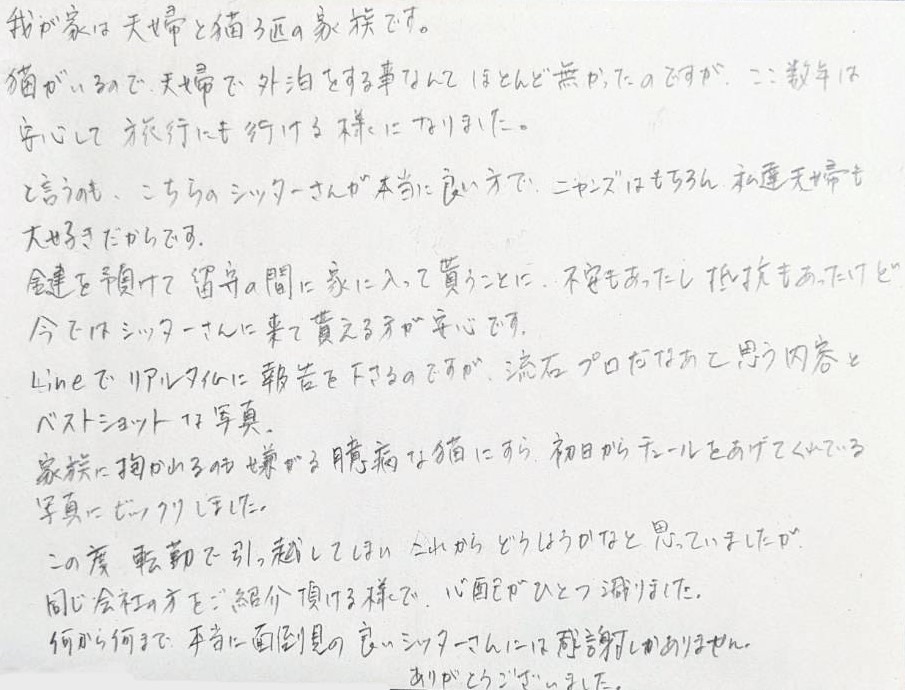 我が家は夫婦と猫3匹の家族です。
猫がいるので、夫婦で外泊をする事なんてほとんど無かったのですが、ここ数年は
安心して旅行にも行ける様になりました。
と言うのも、こちらのシッターさんが本当に良い方で、ニャンズはもちろん私達夫婦も
大好きだからです。
鍵を預けて留守の間に家に入って貰うことに、不安もあったし抵抗もあったけど
今ではシッターさんに来て貰える方が安心です。
Lineでリアルタイムに報告を下さるのですが、流石プロだなあと思う内容と
ベストショットな写真。
家族に抱かれるのも嫌がる臆病な猫にすら、初日からチュールをあげてくれている
写真にビックリしました。
この度転勤で引っ越ししてしまいこれからどうしようかなと思っていましたが、
同じ会社の方をご紹介頂ける様で、心配がひとつ減りました。
何から何まで、本当に面倒見の良いシッターさんには感謝しかありません。
ありがとうございました。